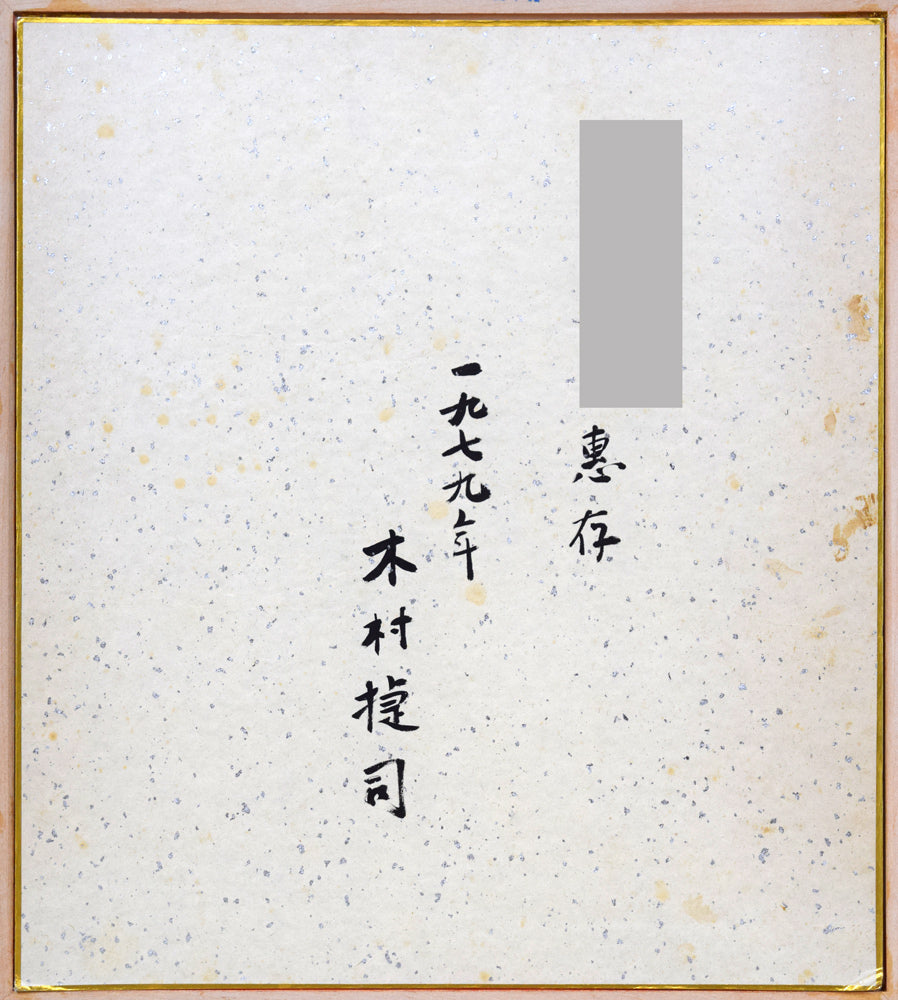 惠存
一九七九年
木村捷司